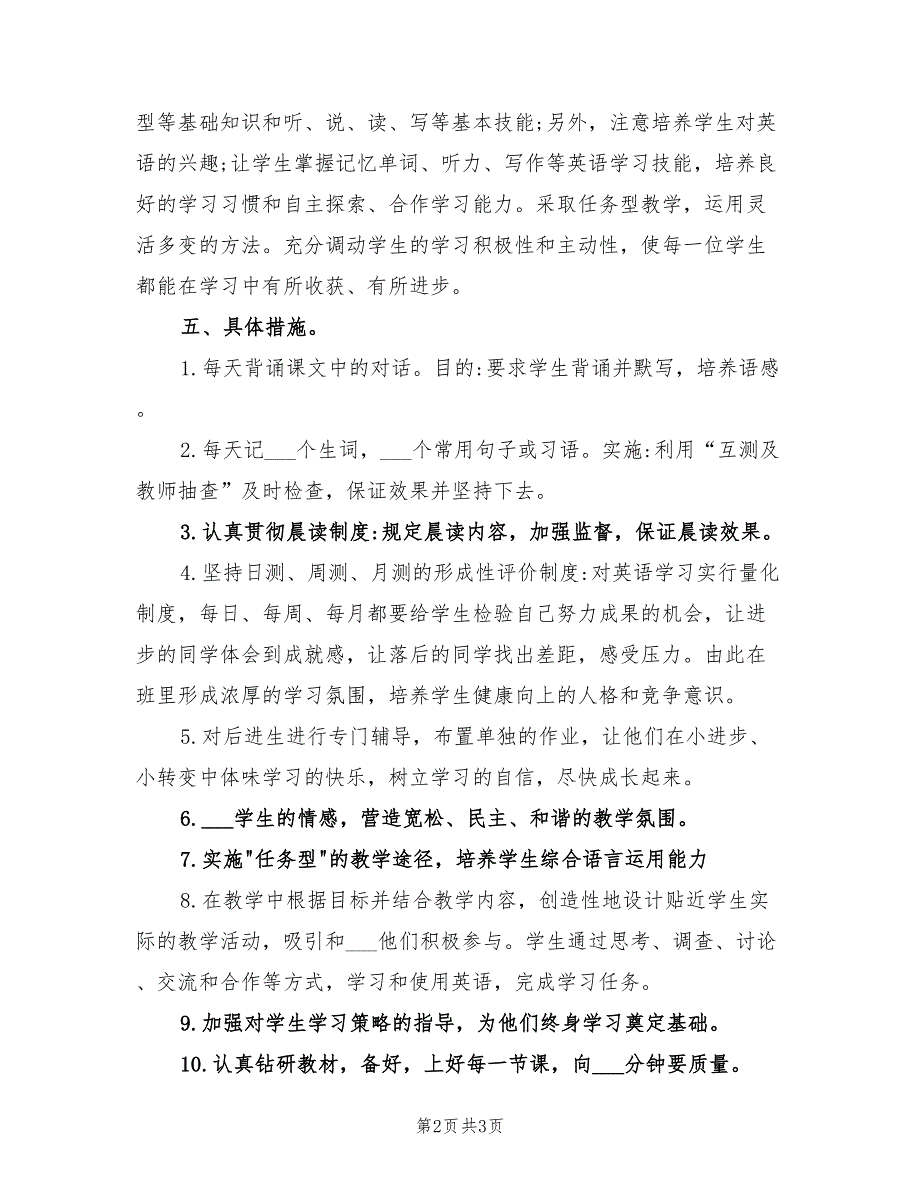 型等基础知识和听、说、读、写等基本技能;另外，注意培养学生对英
语的兴趣;让学生掌握记忆单词、听力、写作等英语学习技能，培养良
好的学习习惯和自主探索、合作学习能力。采取任务型教学，运用灵
活多变的方法。充分调动学生的学习积极性和主动性，使每一位学生
都能在学习中有所收获、有所进步。
五、具体措施。
1.每天背诵课文中的对话。目的:要求学生背诵并默写，培养语感
。
2.每天记___个生词，___个常用句子或习语。实施:利用“互测及
教师抽查”及时检查，保证效果并坚持下去。
3.认真贯彻晨读制度:规定晨读内容，加强监督，保证晨读效果。
4.坚持日测、周测、月测的形成性评价制度:对英语学习实行量化
制度，每日、每周、每月都要给学生检验自己努力成果的机会，让进
步的同学体会到成就感，让落后的同学找出差距，感受压力。由此在
班里形成浓厚的学习氛围，培养学生健康向上的人格和竞争意识。
5.对后进生进行专门辅导，布置单独的作业，让他们在小进步、
小转变中体味学习的快乐，树立学习的自信，尽快成长起来。
6.___学生的情感，营造宽松、民主、和谐的教学氛围。
7.实施"任务型"的教学途径，培养学生综合语言运用能力
8.在教学中根据目标并结合教学内容，创造性地设计贴近学生实
际的教学活动，吸引和___他们积极参与。学生通过思考、调查、讨论
、交流和合作等方式，学习和使用英语，完成学习任务。
9.加强对学生学习策略的指导，为他们终身学习奠定基础。
10.认真钻研教材，备好，上好每一节课，向___分钟要质量。
第2页 共3页